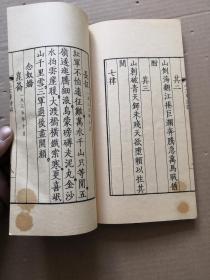 其二
山倒海翻江捲巨瀾奔騰急萬馬戰猶
酣
其三
山刺破青天鍔未殘天欲墮賴以拄其
間
七律
長征
紅軍不怕遠征難萬水千山只等閒五
嶺逶迤騰細浪烏蒙磅礴走泥丸金沙
水拍雲崖暖大渡橋橫鐵索寒更喜岷
山千里雪三軍過後盡開顏
念奴嬌
崑崙